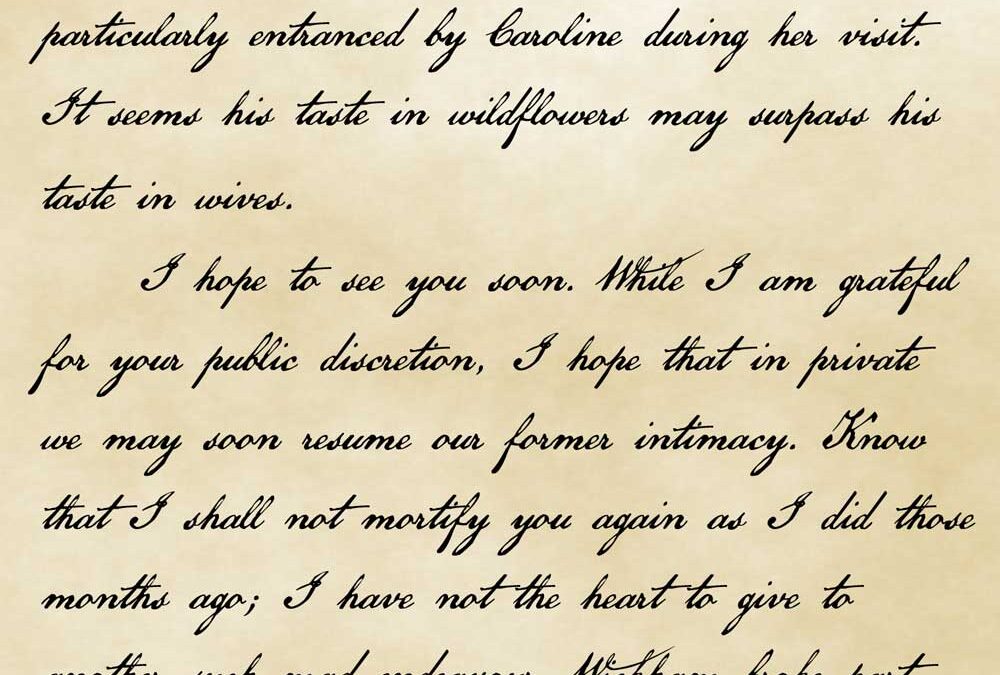 particularly entranced by Caroline during her visit.
It seems his taste in wildflowers may surpass his
taste in wives.
I hope to see you soon. While I am grateful
for your public discretion, I hope that in private
we may soon resume our former intimacy. Know
that I shall not mortify you again as I did those
months ago; I have not the heart to give to
another such mad endeavour. Wickham broke part